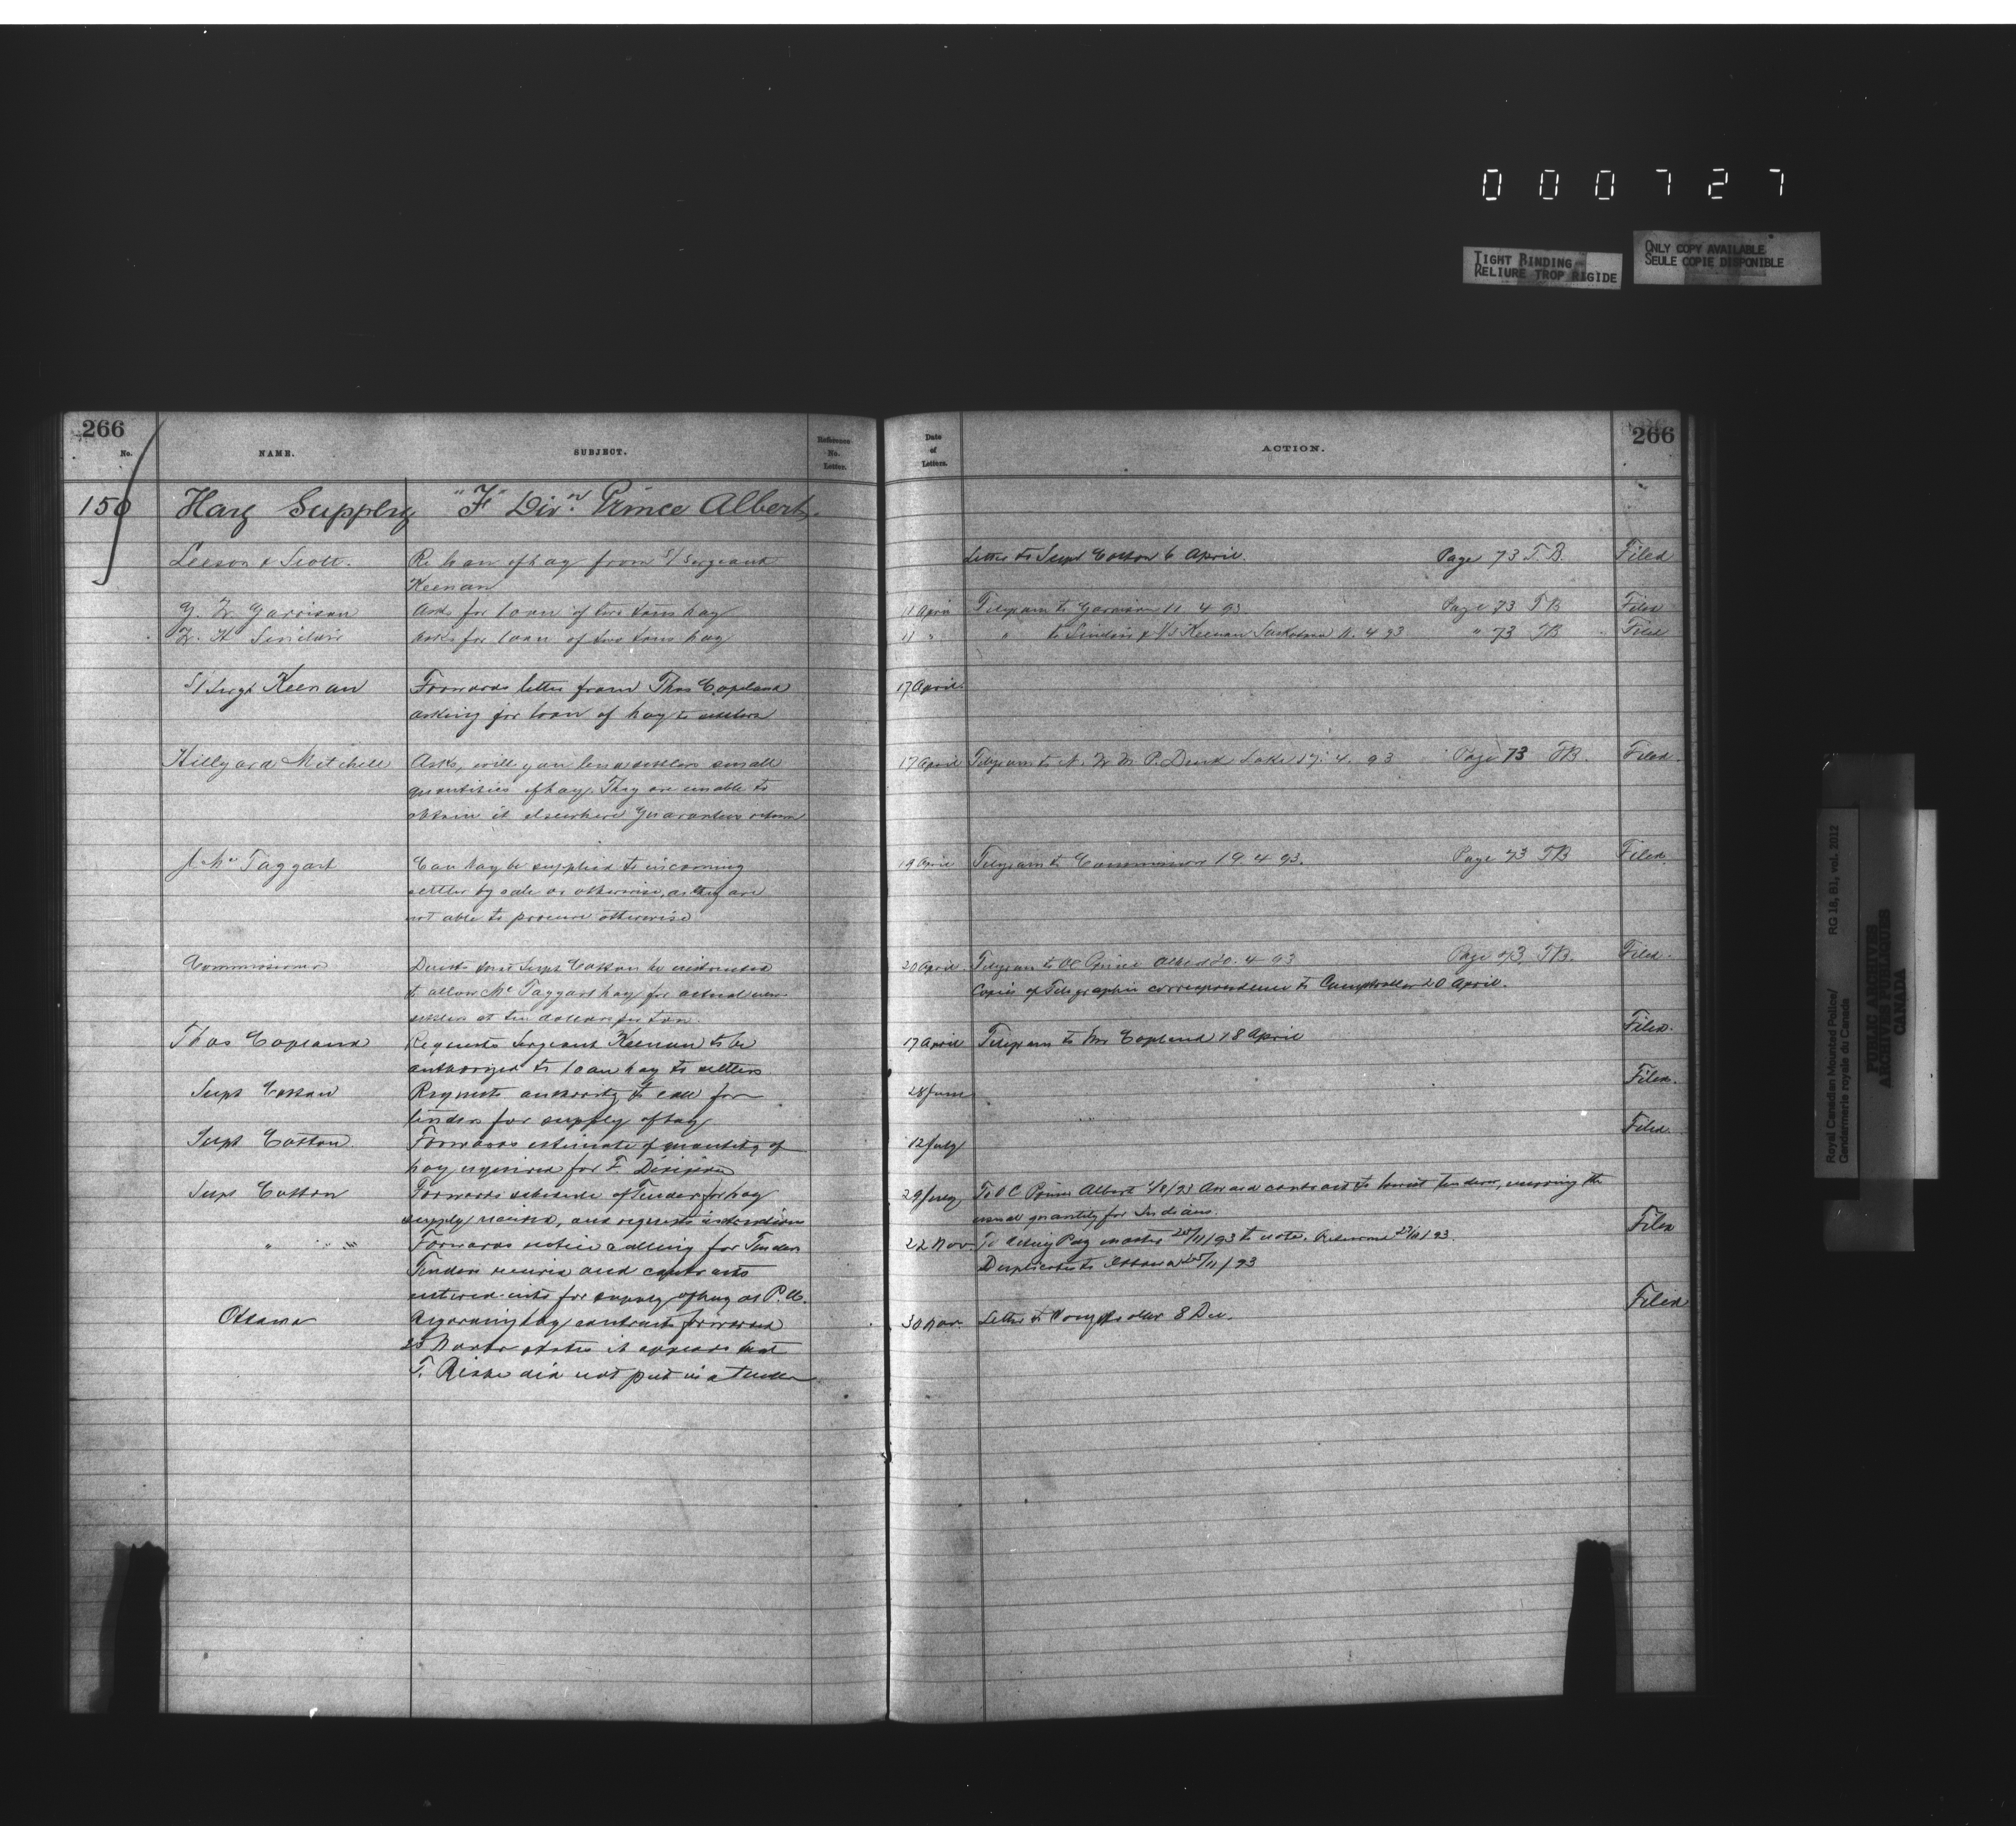 000727
TIGHT BINDING
RELIURE TROP RIGIDE
ONLY COPY AVAILABLE
SEULE COPIE DISPONIBLE
266
No.
NAME.
SUBJECT.
Reference
No.
Letter.
Date
of
Letters.
ACTION.
266
150 Hay Supply "F" Divn. Prince Albert.
Leeson & Scott. Re loan of hay from S/Sergeant Letter to Supt Cotton 6 April. Page 73 T.B. Filed
Keenan
G. W. Garrison Asks for loan of two tons hay 11 April Telegram to Garrison 11. 4 93 Page 73 TB Filed
W. H. Sinclair Asks for loan of two tons hay 11 " " to Sinclair & S/S Keenan Saskatoon 11. 4 93 " 73 TB Filed
S/Sergt Keenan Forwards letter from Thos Copeland 17 April.
asking for loan of hay to settlers
Hillyard Mitchell Asks, will you lend settlers small 17 April Telegram to N. W. M. P. Duck Lake 17. 4. 93 Page 73 TB. Filed.
quantities of hay. They are unable to
obtain it elsewhere Guarantees return
J. Mc Taggart Can hay be supplied to incoming 19 April Telegram to Commissioner 19 4 93. Page 73 TB Filed.
settler by sale or otherwise, as they are
not able to procure otherwise
Commissioner Directs that Supt Cotton be instructed 20 April. Telegram to OC Prince Albert 20. 4 93 Page 73. TB. Filed.
to allow Mc Taggart hay for actual new Copies of Telegraphic correspondence to Comptroller 20 April.
settlers at ten dollars per ton.
Thos Copeland Requests Sergeant Keenan to be 17 April Telegram to Mr Copland 18 April Filed.
authorized to loan hay to settlers
Supt Cotton Requests authority to call for 28 June Filed.
tenders for supply of hay
Supt Cotton Forwards estimate of quantity of 12 July Filed.
hay required for F. Division
Supt Cotton Forwards schedule of Tenders for hay 29 July To O C Prince Albert 4/8/93 Award contract to lowest tenderer, reserving the
supply received, and requests instructions usual quantity for Indians. Filed
" " " Forwards notice calling for Tenders 22 Nov To Acting Pay master 25/11/93 to note. Returned 27/11/93.
Tenders received and contracts Duplicates to Ottawa 25/11/93
entered into for supply of hay at P. A. Filed
Ottawa Regarding hay contracts forwarded 30 Nov. Letter to Comptroller 8 Dec.
25 Novbr states it appears that
T. did not put in a Tender
Royal Canadian Mounted Police/ RG 18, B1, vol. 2012
Gendarmerie royale du Canada
PUBLIC ARCHIVES
ARCHIVES PUBLIQUES
CANADA